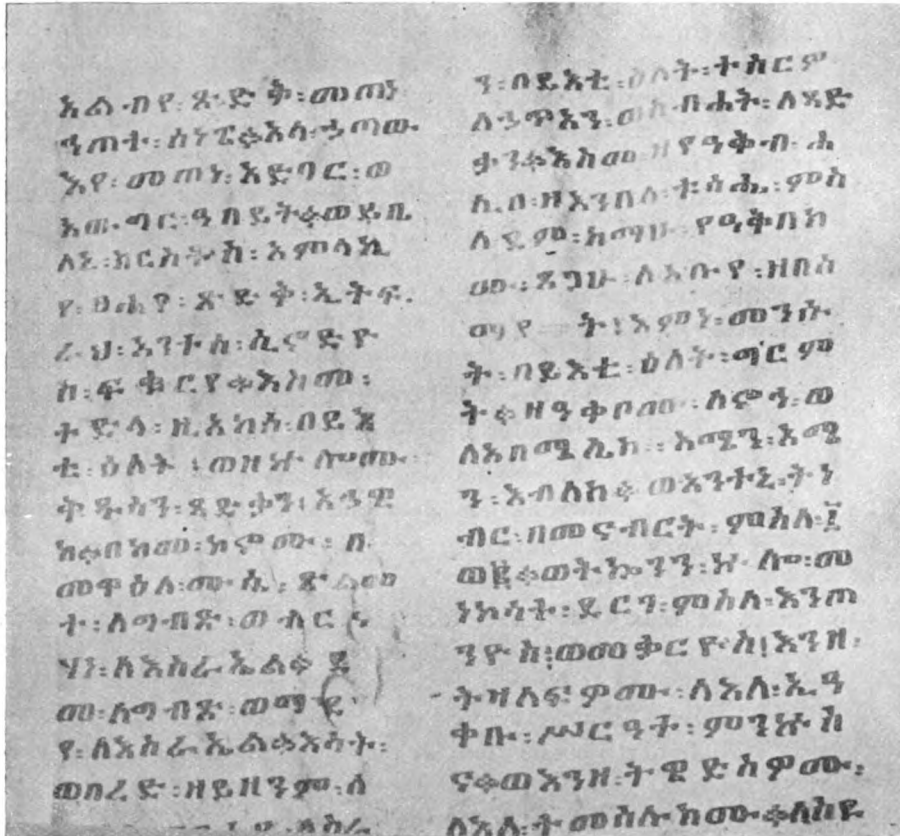 አልብየ፡ጽድቅ፡መጠነ
ኅጠተ፡ሰነፔ።አላ፡ኃጣው
እየ፡መጠነ፡አድባር፡ወ
አውግር፡ዓበይት።ወይቤ
ለኒ፡ክርስቶስ፡አምላኪ
የ፡ፀሐየ፡ጽድቅ፡ኢትፍ
ራህ፡አንተሰ፡ሲኖድዮ
ስ፡ፍቁርየ።እስመ፡
ትድላ፡ዚአከሰ፡በይእ
ቲ፡ዕለት፡ወዘኵሎሙ
ቅዱሳን፡ጻድቃን፡እኁዝ
ከ።በከመ፡ከኖሙ፡በ
መዋዕለ፡ሙሴ፡ጽልመ
ተ፡ለግብጽ፡ወብርና
ሃነ፡ለእስራኤል።ደ
መ፡ለግብጽ፡ወማይ
የ፡ለእስራኤል።እሳት፡
ወበረድ፡ዘይዘንም፡ለ
ን፡በይእቲ፡ዕለት፡ተከርም
ለኃጥአን፡ወአብሐት፡ለጻድ
ቃን።እስመ፡ዘየዓቅብ፡ሐ
ሊበ፡ዘእንበለ፡ትስሒ፡ምስ
ለ፡ደም፡ከማሁ፡የዓቅበክ
ሙ፡ጸጋሁ፡ለአቡየ፡ዘበሰ
ማየ ት፡እምነ፡መንሱ
ት፡በይእቲ፡ዕለት፡ግርም
ት።ዘዓቀቦሙ፡ለኖኅ፡ወ
ለአቤሜሌክ፡አሜን፡አሜ
ን፡እብለከ።ወአንተኒ፡ትነ
ብር፡በመናብርት፡ምስለ፡፲
ወ፪።ወትኴንን፡ኵሎ፡መ
ነኮሳት፡ደርን፡ምስለ፡እንጦ
ንዮስ፡ወመቃርዮስ፡እንዘ፡
ትዛለፍዎሙ፡ለእለ፡ኢዓ
ቀቡ፡ሥርዓተ፡ምንኵስ
ና።ወእንዘ፡ትዌድስዎሙ፡
ለእለ፡ተመሰሉከሙ።